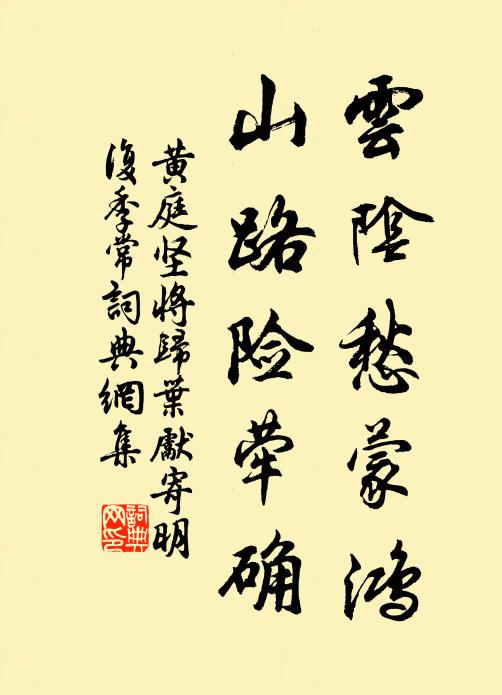 雲陰愁蒙鴻
山路险荦确
黄庭坚将歸葉獻寄明
復季常詞典網集
詞典网印